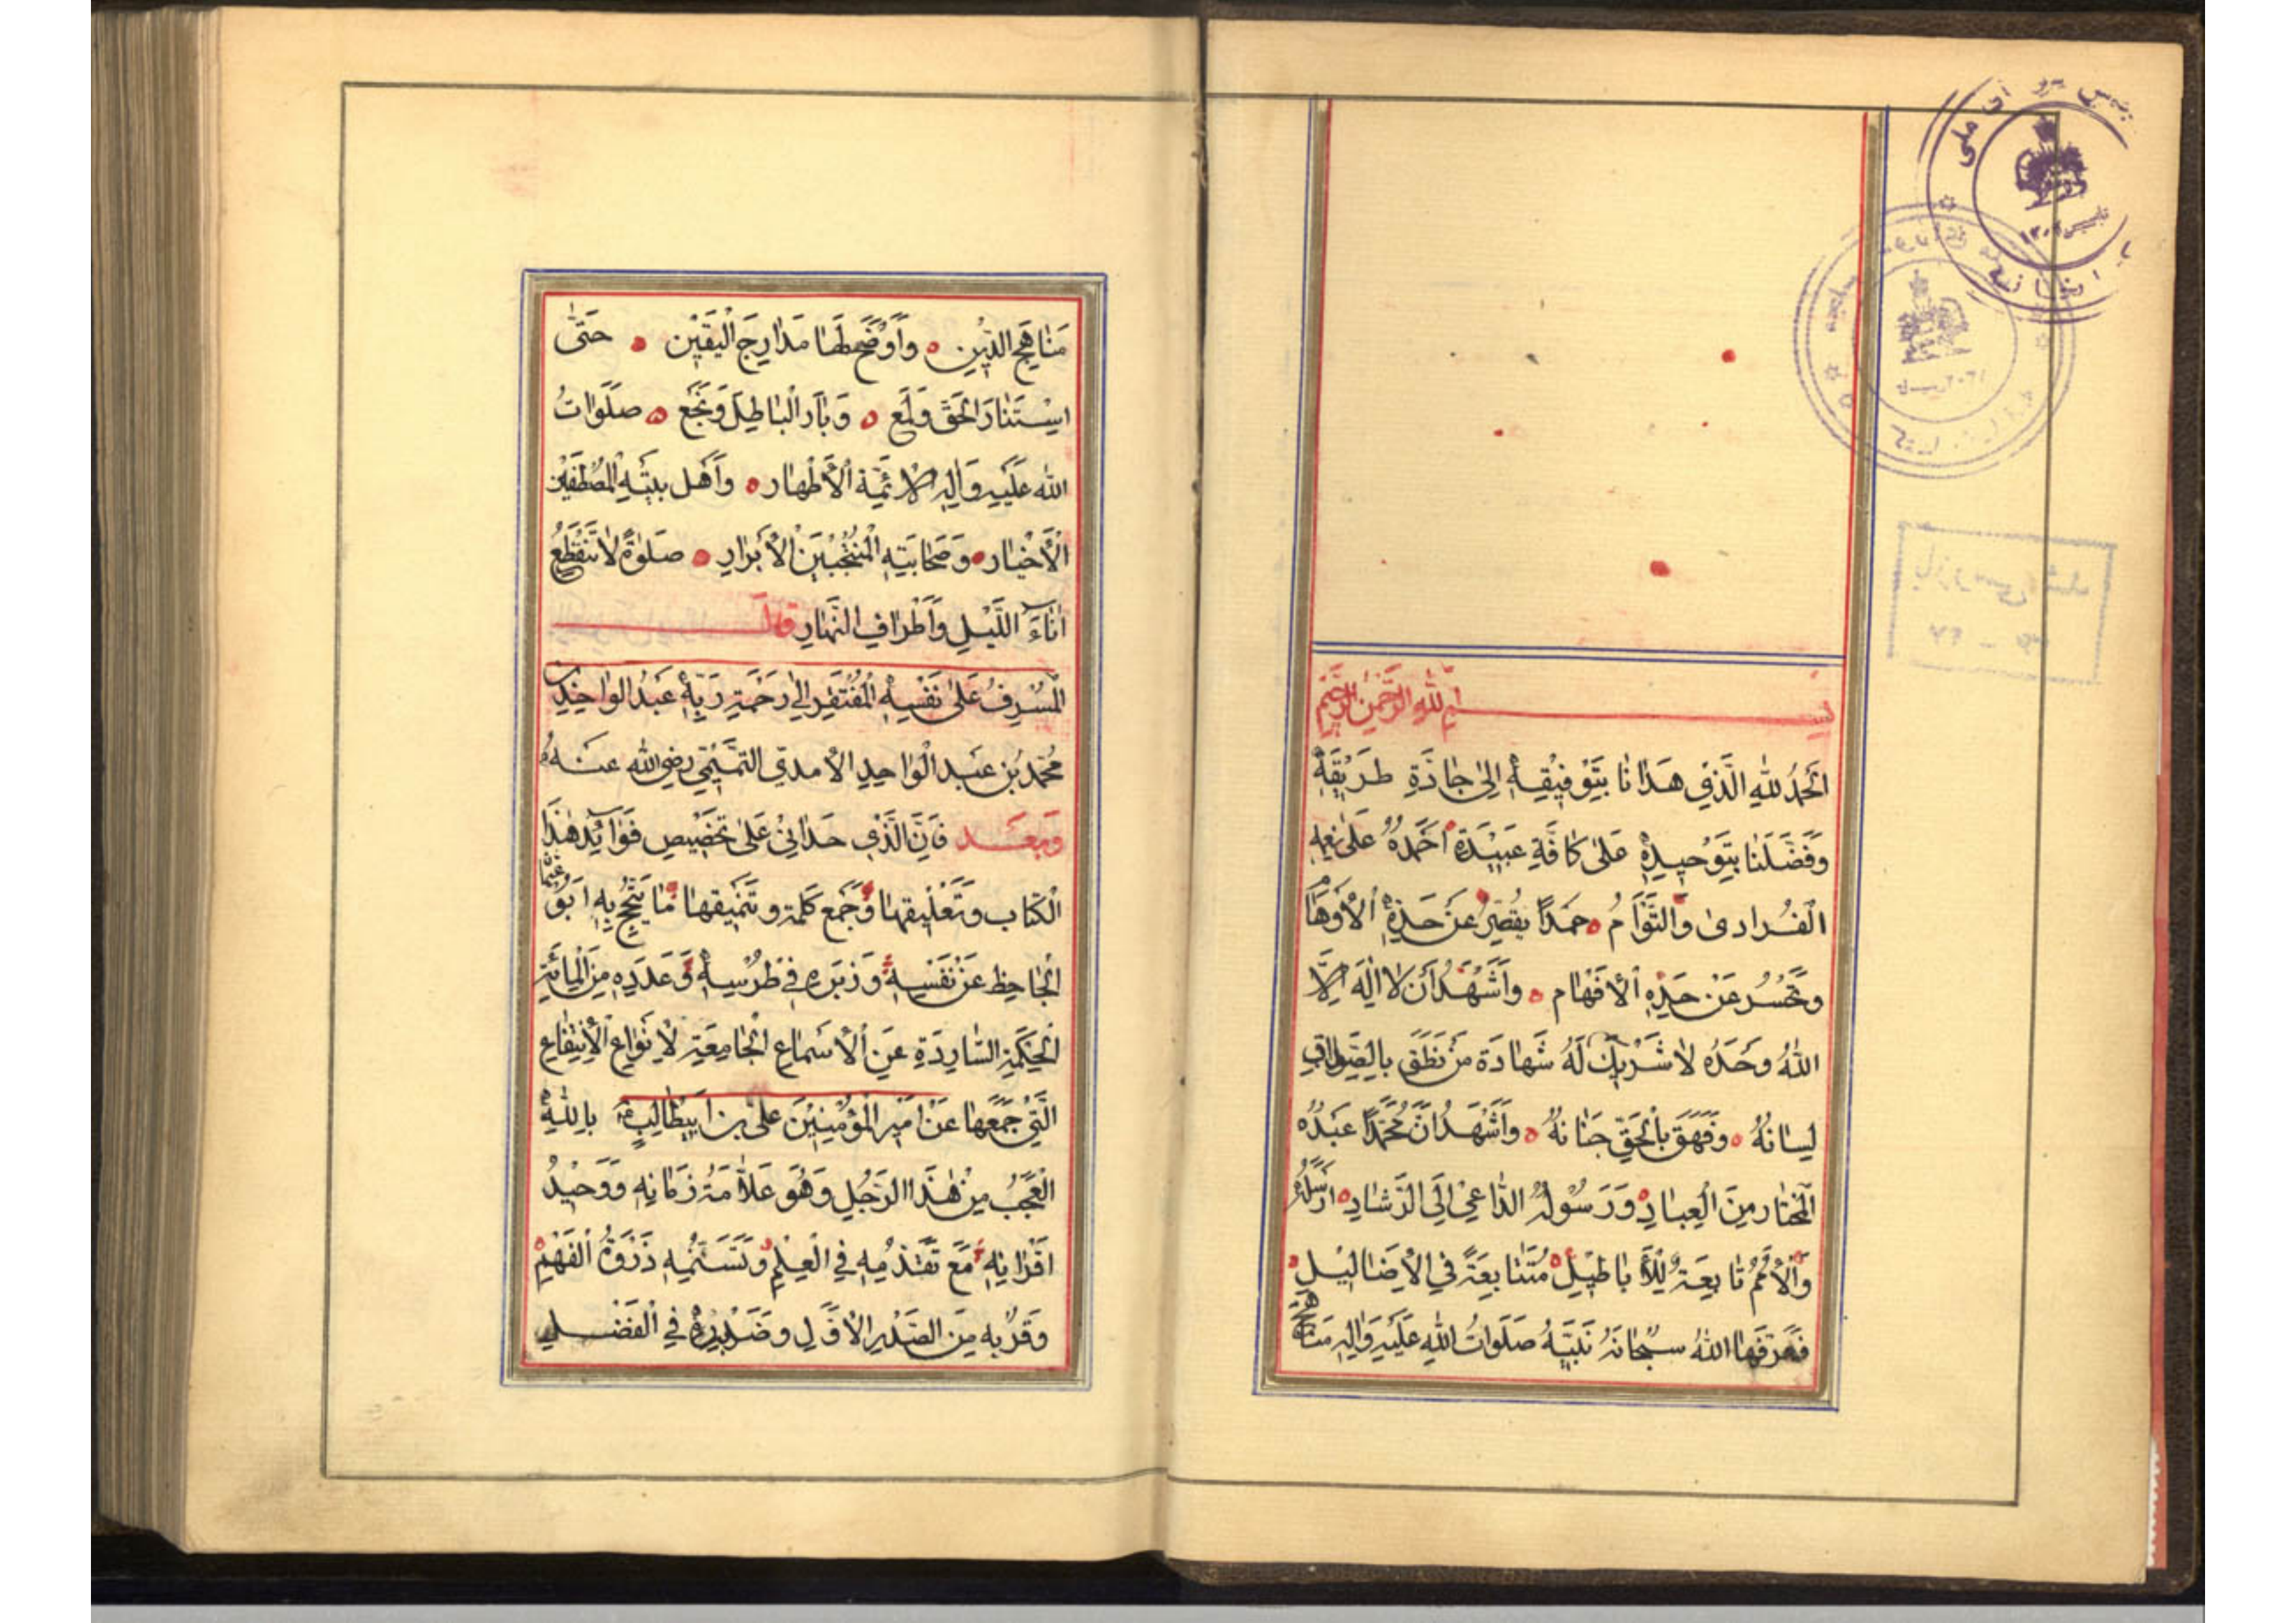 بسم الله الرحمن الرحیم
اَلْحَمْدُ لِلّٰهِ الَّذِی هَدَانَا بِتَوْفِیْقِهِ اِلیٰ جَادَّةِ طَرِیْقَةِ
وَفَضَّلَنَا بِتَوْحِیدِهِ عَلیٰ کَافَّةِ عَبِیْدِهِ اَحْمَدُهُ عَلیٰ نِعَمِهِ
الْفُرادیٰ وَالتَّوَأمُ حَمْدًا یَقْصُرُ عَنْ حَدِّهِ الْأَوْهَامُ
وَتَحْسُرُ عَنْ حَدِّهِ الْأَفْهَام وَاَشْهَدُ اَنْ لَا اِلٰهَ اِلَّا
اللّٰهُ وَحْدَهُ لَا شَرِیْكَ لَهُ شَهَادَةَ مَنْ نَطَقَ بِالصَّوابِ
لِسَانُهُ وَفَهَقَ بِالْحَقِّ جَنَانُهُ وَاَشْهَدُ اَنَّ مُحَمَّدًا عَبْدُهُ
الْمُخْتَارُ مِنَ الْعِبَادِ وَرَسُولُهُ الدَّاعِیْ اِلَی الرَّشَادِ اَرْسَلَهُ
وَالْاُمَمُ تَابِعَةٌ لِلْأَبَاطِیْلِ مُتَتَابِعَةً فِی الْأَضَالِیْلِ
فَعَرَّفَهَا اللّٰهُ سُبْحَانَهُ نَبِیَّهُ صَلَوَاتُ اللّٰهِ عَلَیْهِ وَاٰلِهِ
مَنَاهِجَ الدِّیْنِ وَاَوْضَحَ لَهَا مَدَارِجَ الْیَقِیْنِ حَتّٰی
اسْتَنَارَ الْحَقُّ وَلَمَع وَبَارَ الْبَاطِلُ وَنَجَع صَلَوَاتُ
اللّٰه عَلَیْهِ وَاٰلِهِ الْأَئِمَّةِ الْأَطْهَار وَاَهْلِ بَیْتِهِ الْمُصْطَفَیْنَ
الْأَخْیَار وَصَحَابَتِهِ الْمُنْتَجَبِیْنَ الْأَبْرَارِ صَلوٰةً لَا تَنْقَطِعُ
اٰنَاءَ اللَّیْلِ وَاَطْرَافَ النَّهَارِ قال
الْمُسْرِفُ عَلیٰ نَفْسِهِ الْمُفْتَقِرُ اِلیٰ رَحْمَةِ رَبِّهِ عَبْدُ الْوَاحِدِ بْنِ
مُحَمَّدِ بْنِ عَبْدِ الْوَاحِدِ الْاٰمِدِیِّ التَّمِیْمِیِّ رَضِیَ اللّٰه عَنْهُ
وَبَعْد فَاِنَّ الَّذِی حَدَانِیْ عَلیٰ تَخْصِیصِ فَوَائِدِ هٰذَا
الْکِتَابِ وَتَعْلِیْقِهَا وَجَمْعِ کَلِمَةِ وَتَنْمِیْقِهَا مَا تَبَجَّحَ بِهِ اَبُو عُثْمَان
الْجَاحِظ عَنْ نَفْسِهِ وَزَبَرَهُ فِی طِرْسِهِ وَعَدَدِهِ مِنَ الْمِائَةِ
الْحِکْمَةِ الشَّارِدَةِ عَنِ الْأَسْمَاعِ الْجَامِعَةِ لِأَنْوَاعِ الْاِنْتِفَاعِ
الَّتِیْ جَمَعَهَا عَنْ اَمِیْرِ الْمُؤْمِنِیْنَ عَلِی بْنِ اَبِیْطَالِبٍ بِاللّٰهِ
الْعَجَبُ مِنْ هٰذَا الرَّجُلِ وَهُوَ عَلَّامَةُ زَمَانِهِ وَوَحِیْدُ
اَقْرَانِهِ مَعَ تَقَدُّمِهِ فِی الْعِلْمِ وَتَسَنُّمِهِ ذَرْوَةَ الْفَهْمِ
وَقُرْبِهِ مِنَ الصَّدْرِ الْأَوَّلِ وَضَرْبِهِ فِی الْفَضْلِ